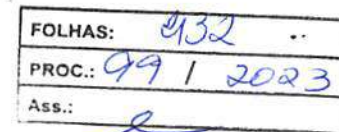 FOLHAS: 432
PROC.: 99 / 2023
Ass.: